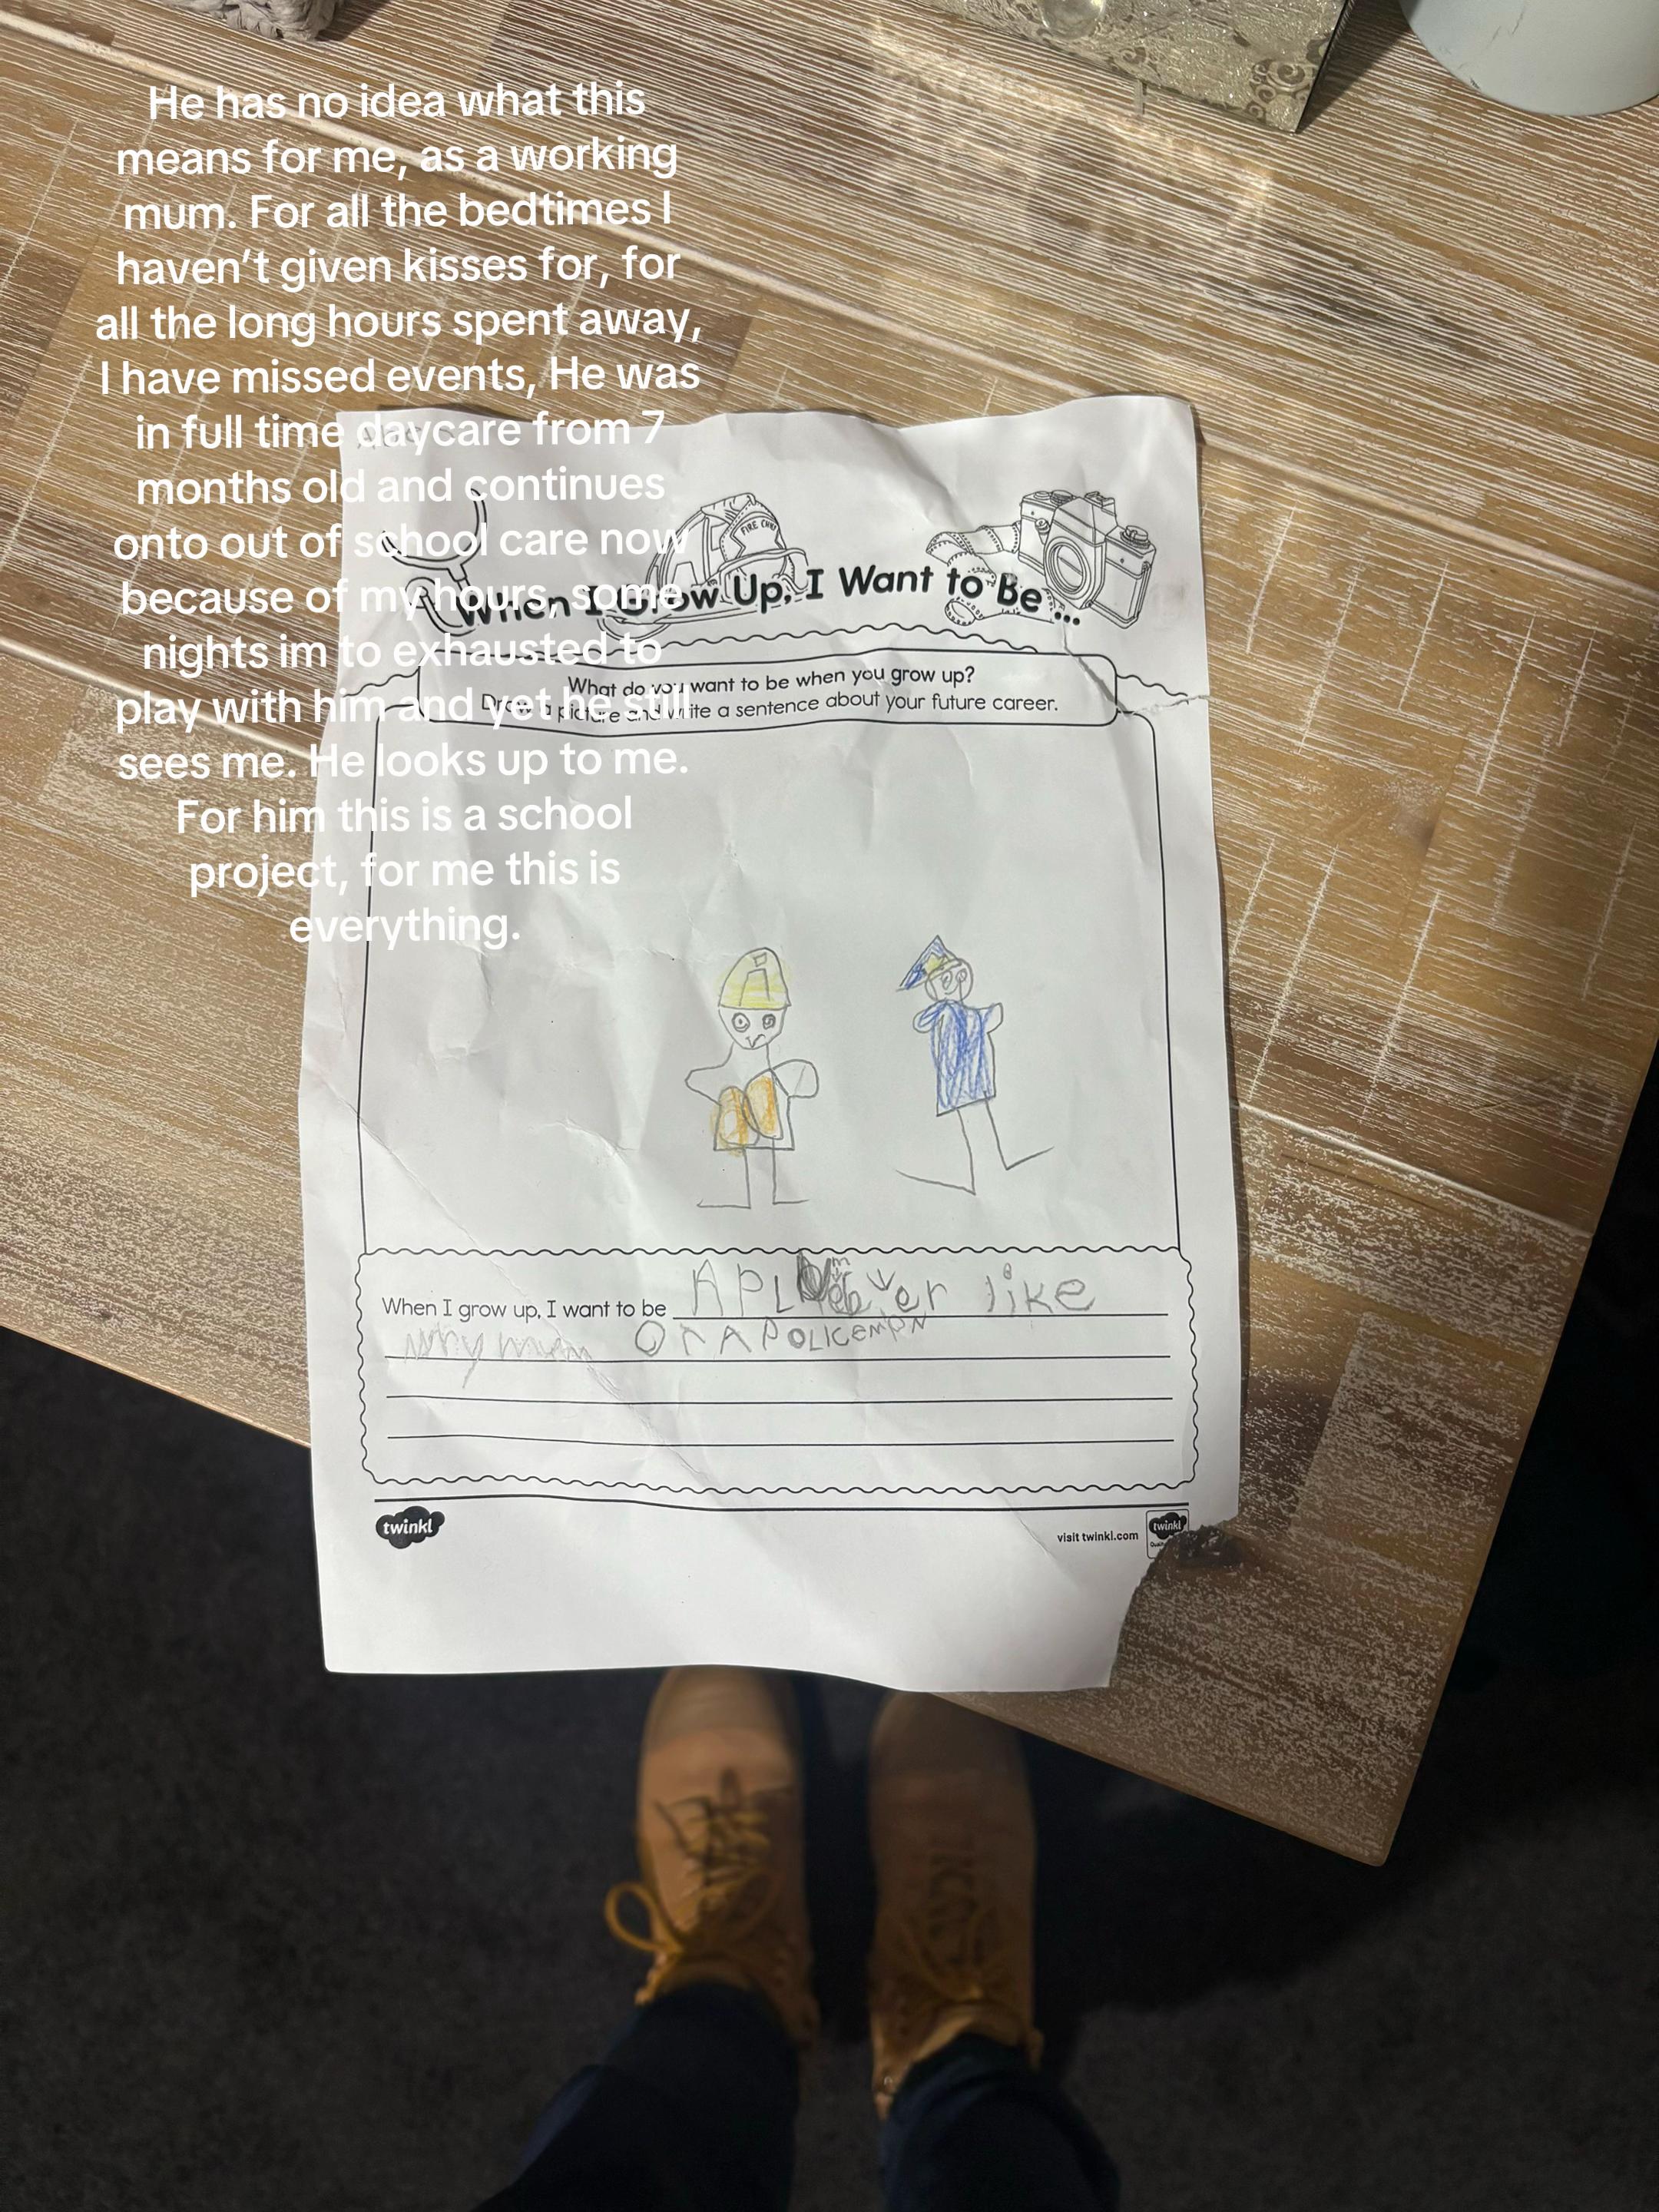 He has no idea what this
means for me, as a working
mum. For all the bedtimes I
haven't given kisses for, for
all the long hours spent away,
I have missed events, He was
in full time daycare from 7
months old and continues
onto out of school care now
because of my hours, some
nights im to exhausted to
play with him and yet he still
sees me. He looks up to me.
For him this is a school
project, for me this is
everything.
FIRE CHIEF
When I Grow Up, I Want to Be ...
What do you want to be when you grow up?
Draw a picture and write a sentence about your future career.
When I grow up, I want to be A like
my mum Or A POLICEMAN
twinkl
visit twinkl.com
twinkl